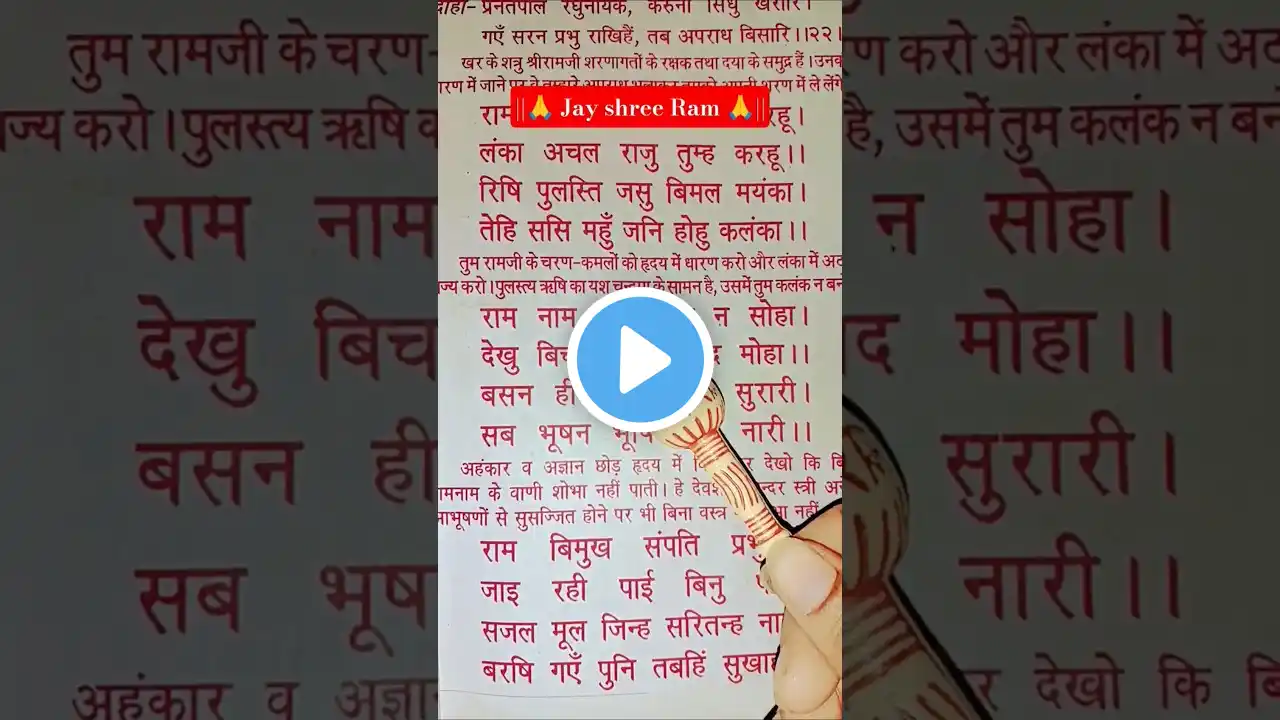 प्रनतपाल रघुनायक, करुना सिंधु खरारि।
गएँ सरन प्रभु राखिहैं, तब अपराध बिसारि।।२२।
खर के शत्रु श्रीरामजी शरणागतों के रक्षक तथा दया के समुद्र हैं। उनक
रण में जाने पर
शरण में ले लेंगे
|| 🙏 Jay shree Ram 🙏 ||
राम
लंका अचल राजु तुम्ह करहू।।
रिषि पुलस्ति जसु बिमल मयंका।
तेहि ससि महुँ जनि होहु कलंका।।
तुम रामजी के चरण-कमलों को हृदय में धारण करो और लंका में अट
ज्य करो। पुलस्त्य ऋषि का यश चन्द्रमा के सामन है, उसमें तुम कलंक न बन
राम नाम न सोहा।
देखु बिच द मोहा।।
बसन ही सुरारी।
सब भूषन भूषि नारी।।
अहंकार व अज्ञान छोड़ हृदय में देखो कि बि
मनाम के वाणी शोभा नहीं पाती। हे देवश न्दर स्त्री अ
भूषणों से सुसज्जित होने पर भी बिना वस्त्र भा नहीं
राम बिमुख संपति प्रभु
जाइ रही पाई बिनु
सजल मूल जिन्ह सरितन्ह ना
बरषि गएँ पुनि तबहिं सुखा